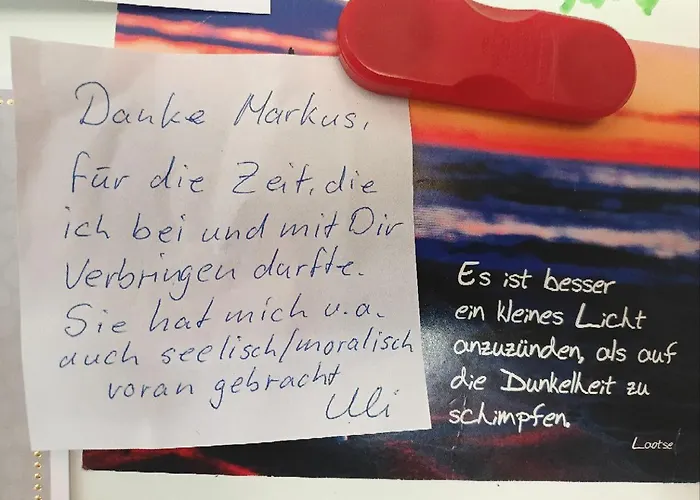 Danke Markus,
für die Zeit, die
ich bei und mit Dir
Verbringen durfte.
Sie hat mich u.a.
auch seelisch/moralisch
voran gebracht
Uli
Es ist besser
ein kleines Licht
anzuzünden, als auf
die Dunkelheit zu
schimpfen.
Laotse